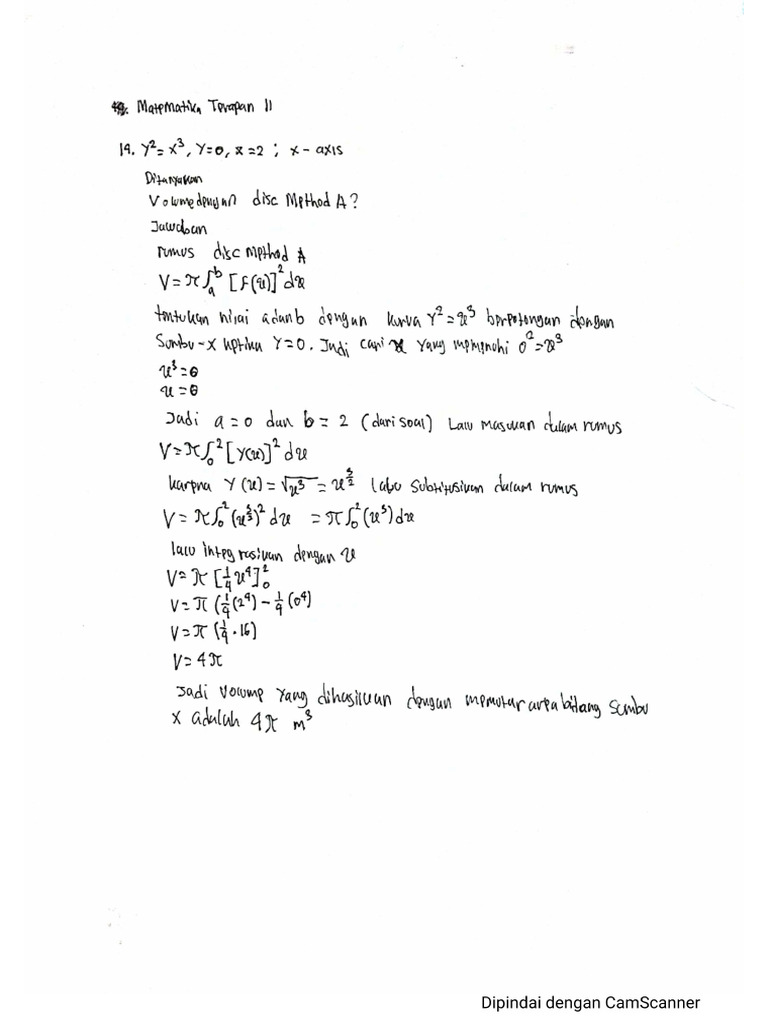 Matematika Terapan II
19. Y² = X³, Y=0, x=2 ; x - axis
Ditanyakan
Volume dengan disc Method A?
Jawaban
rumus disc Method A
V = π∫ₐᵇ [f(x)]² dx
tentukan nilai a dan b dengan kurva Y² = x³ berpotongan dengan
Sumbu-X ketika Y=0. Jadi cari x yang memenuhi 0² = x³
x³ = 0
x = 0
Jadi a = 0 dan b = 2 (dari soal) Lalu masukan dalam rumus
V = π∫₀² [Y(x)]² dx
karena Y(x) = √x³ = x^(3/2) lalu Subtitusikan dalam rumus
V = π∫₀² (x^(3/2))² dx = π∫₀² (x³) dx
lalu integrasikan dengan x
V = π [1/4 x⁴]₀²
V = π (1/4 (2⁴) - 1/4 (0⁴)
V = π (1/4 . 16)
V = 4π
Jadi Volume yang dihasilkan dengan memutar area bidang Sumbu
X adalah 4π m³
Dipindai dengan CamScanner